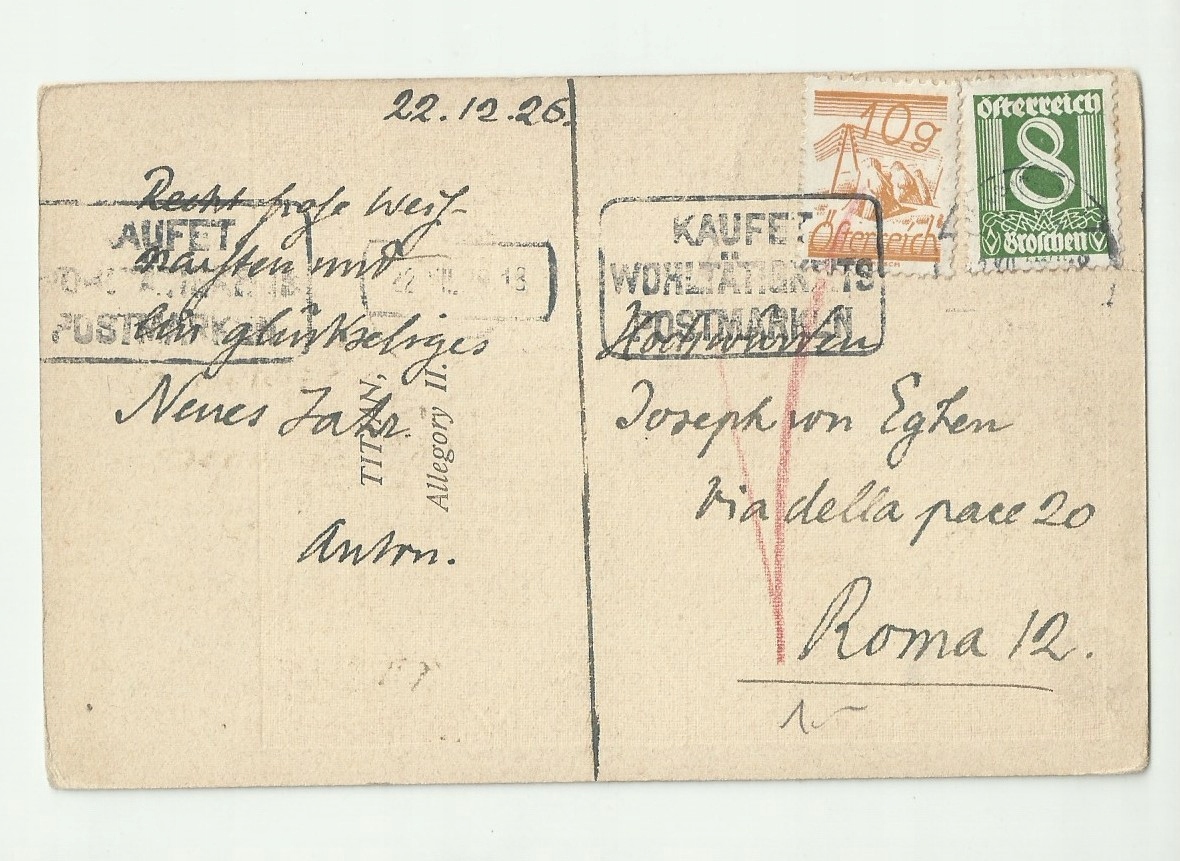 22.12.26.
Recht frohe Weih-
nachten und
ein glückseliges
Neues Jahr.
Anton.
TITIAN,
Allegory II.
AUFET
POSTMARKEN
22 18
KAUFET
WOHLTÄTIGKEITS
POSTMARKEN
10g
Österreich
Österreich
8
Groschen
Hochwürden
Joseph von Egken
Via della pace 20
Roma 12.